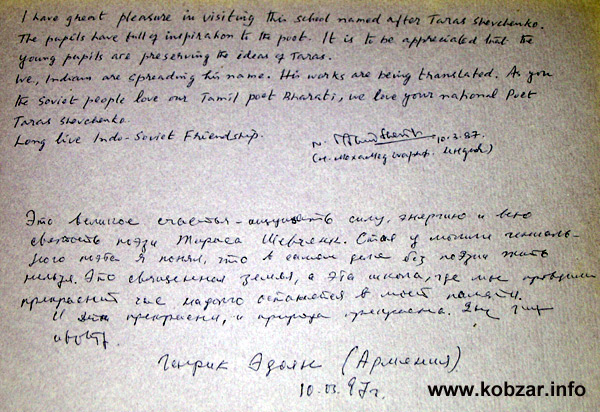 I have great pleasure in visiting this school named after Taras Shevchenko.
The pupils have full of inspiration to the poet. It is to be appreciated but the
young pupils are preserving the ideas of Taras.
We, Indians are spreading his name. His works are being translated. As you
the Soviet people love our Tamil poet Bharati, we love your national Poet
Taras Shevchenko.
Long live Indo-Soviet Friendship.
10.3.87.
(Н. Мохамед Индия)
Это великое счастье - ощущать силу, энергию и всю
святость поэзи Тараса Шевченк. Стоя у могилы гениаль-
ного поэта я понял, что в самом деле без поэзии жить
нельзя. Это священная земля, а эта школа, где мне провели
прекрасний час надолго останется в моей памяти.
И прекрасни, и природа прекрасна.
Генрик Эдоян (Армения)
10.03.87г.
www.kobzar.info